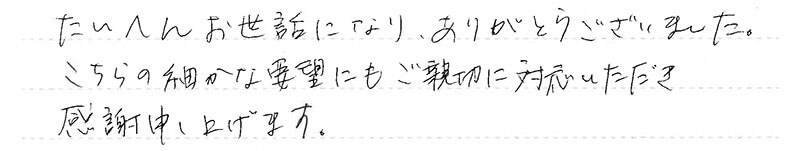 たいへんお世話になり、ありがとうございました。
こちらの細かな要望にもご親切に対応いただき
感謝申し上げます。